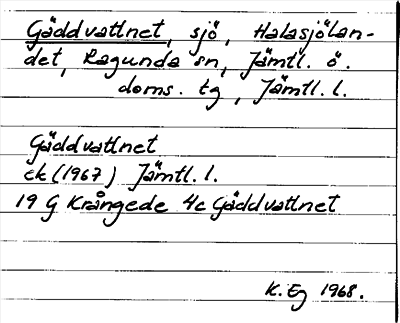 Gäddvattnet, sjö, Halasjölan-
det, Ragunda sn, Jämtl. ö.
doms. tg, Jämtl. l.
Gäddvattnet
ek (1967) Jämtl. l.
19 G Krångede 4c Gäddvattnet
K. Eg 1968.